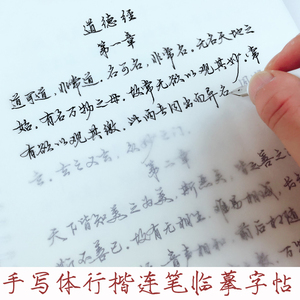 道德经
第一章
道可道，非常道，名可名，非常名，无名天地之
始，有名万物之母，故常无欲以观其妙，常
有欲以观其徼，此两者同出而异名
玄，玄之又玄，众妙之门。
第二章
天下皆知美之为美，斯恶矣，皆知善之
斯不善已，故有无相生，难易相成，长
音声相和，前后相随
手写体行楷连笔临摹字帖